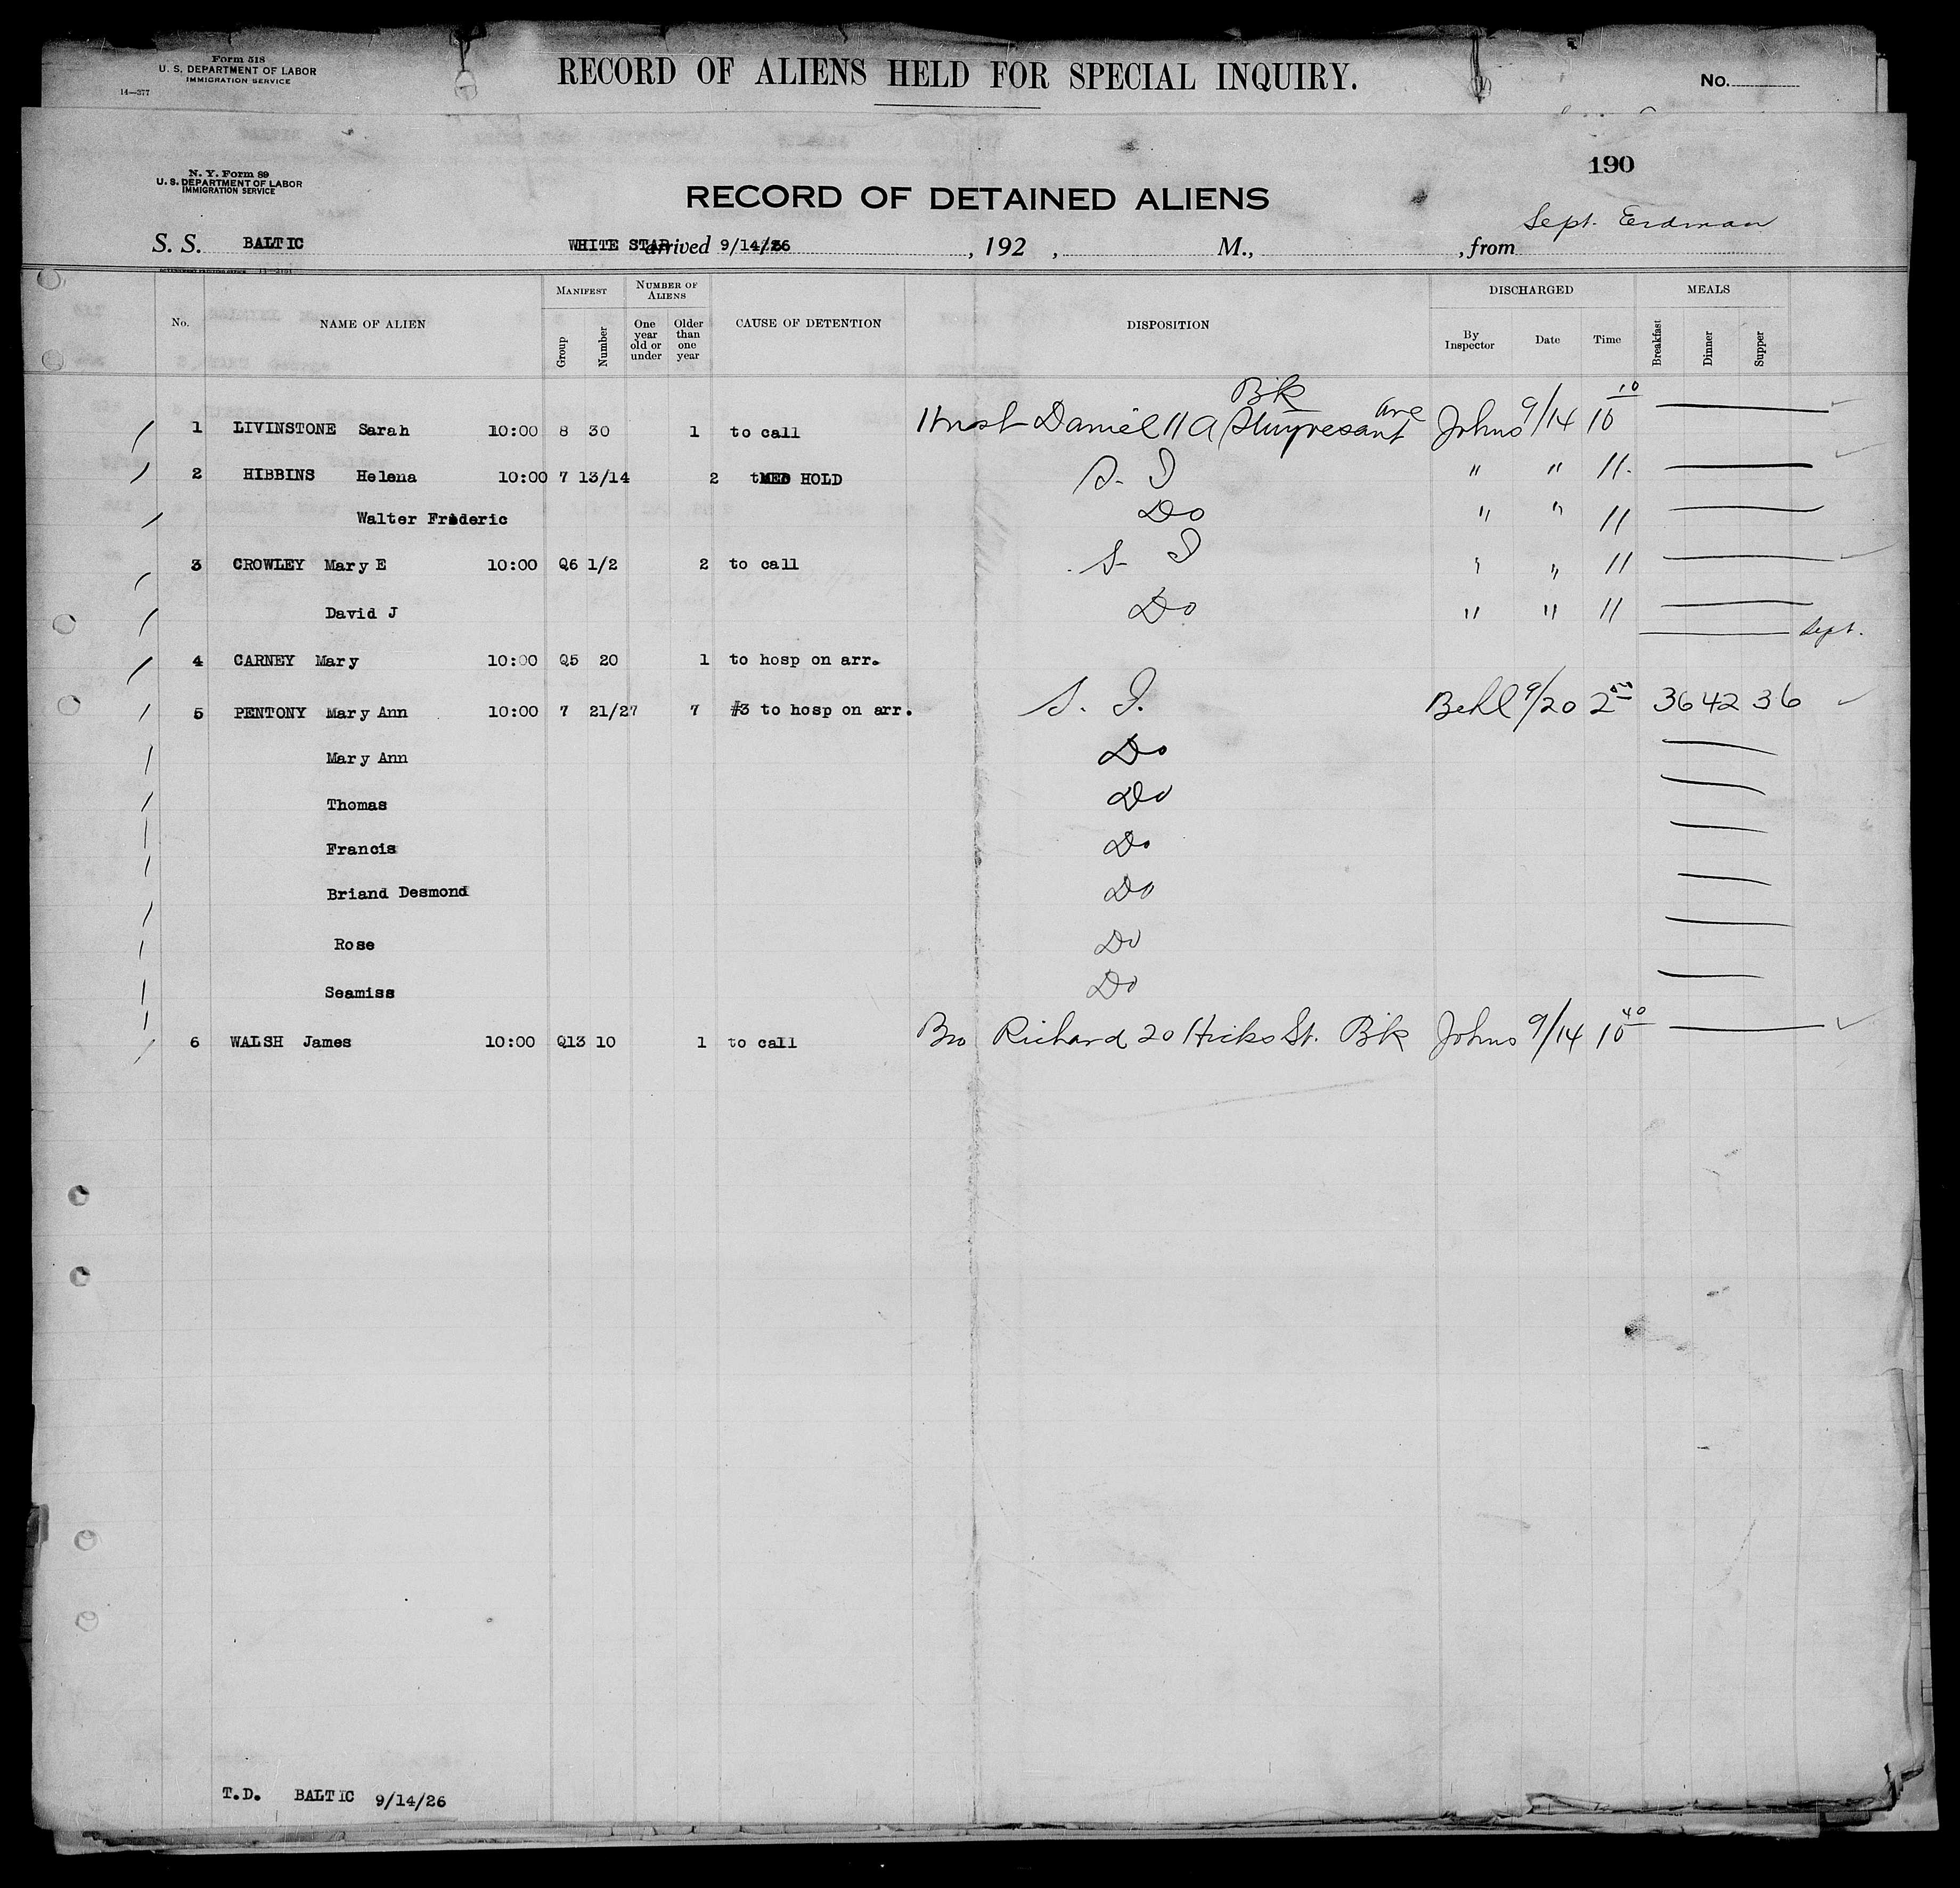 Form 518
U. S. DEPARTMENT OF LABOR
IMMIGRATION SERVICE
14—377
RECORD OF ALIENS HELD FOR SPECIAL INQUIRY.
No.
190
N. Y. Form 89
U. S. DEPARTMENT OF LABOR
IMMIGRATION SERVICE
RECORD OF DETAINED ALIENS
Sept. Erdman
S. S. BALTIC WHITE STAR arrived 9/14/26 , 192 , M., , from
No. NAME OF ALIEN MANIFEST Group Number NUMBER OF ALIENS One year old or under Older than one year CAUSE OF DETENTION DISPOSITION DISCHARGED By Inspector Date Time MEALS Breakfast Dinner Supper
1 LIVINSTONE Sarah 10:00 8 30 1 to call Husb Daniel 11 A Stuyvesant Ave Bk Johns 9/14 10 10
2 HIBBINS Helena 10:00 7 13/14 2 MED HOLD S. I " " 11
Walter Frideric Do " " 11
3 CROWLEY Mary E 10:00 Q6 1/2 2 to call S. I " " 11
David J Do " " 11
Sept.
4 CARNEY Mary 10:00 Q5 20 1 to hosp on arr.
5 PENTONY Mary Ann 10:00 7 21/27 7 #3 to hosp on arr. S. I. Behl 9/20 2 36 42 36
Mary Ann Do
Thomas Do
Francis Do
Briand Desmond Do
Rose Do
Seamiss Do
6 WALSH James 10:00 Q13 10 1 to call Bro Richard 20 Hicks St. Bk Johns 9/14 10 40
T.D. BALTIC 9/14/26